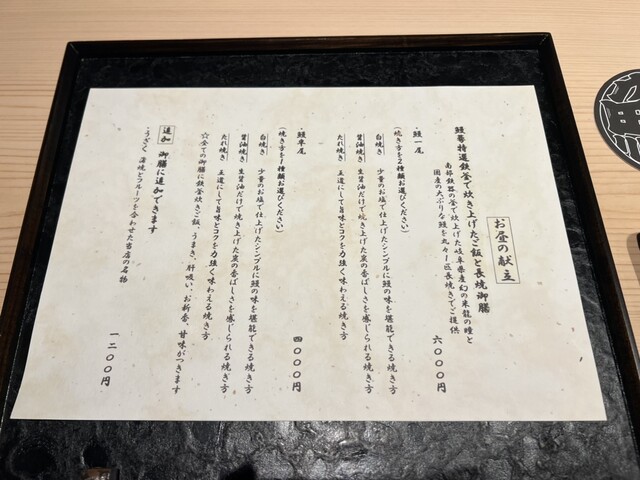 お昼の献立
鰻蓉特選鉄釜で炊き上げたご飯と長焼御膳
南部鉄器の釜で炊上げた岐阜県産幻の米龍の瞳と
国産の大ぶりな鰻を丸々1匹長焼きでご提供
・鰻一尾
六〇〇〇円
(焼き方を2種類お選びください)
白焼き 少量のお塩で仕上げたシンプルに鰻の味を堪能できる焼き方
醤油焼き 生醤油だけで焼き上げた炭の香ばしさを感じられる焼き方
たれ焼き 王道にして旨味とコクを力強く味わえる焼き方
・鰻半尾
四〇〇〇円
(焼き方を1種類お選びください)
白焼き 少量のお塩で仕上げたシンプルに鰻の味を堪能できる焼き方
醤油焼き 生醤油だけで焼き上げた炭の香ばしさを感じられる焼き方
たれ焼き 王道にして旨味とコクを力強く味わえる焼き方
☆全ての御膳に鉄釜炊きご飯、うまき、肝吸い、お新香、甘味がつきます
追加 御膳に追加できます
・うざく 蒲焼とフルーツを合わせた当店の名物
一二〇〇円